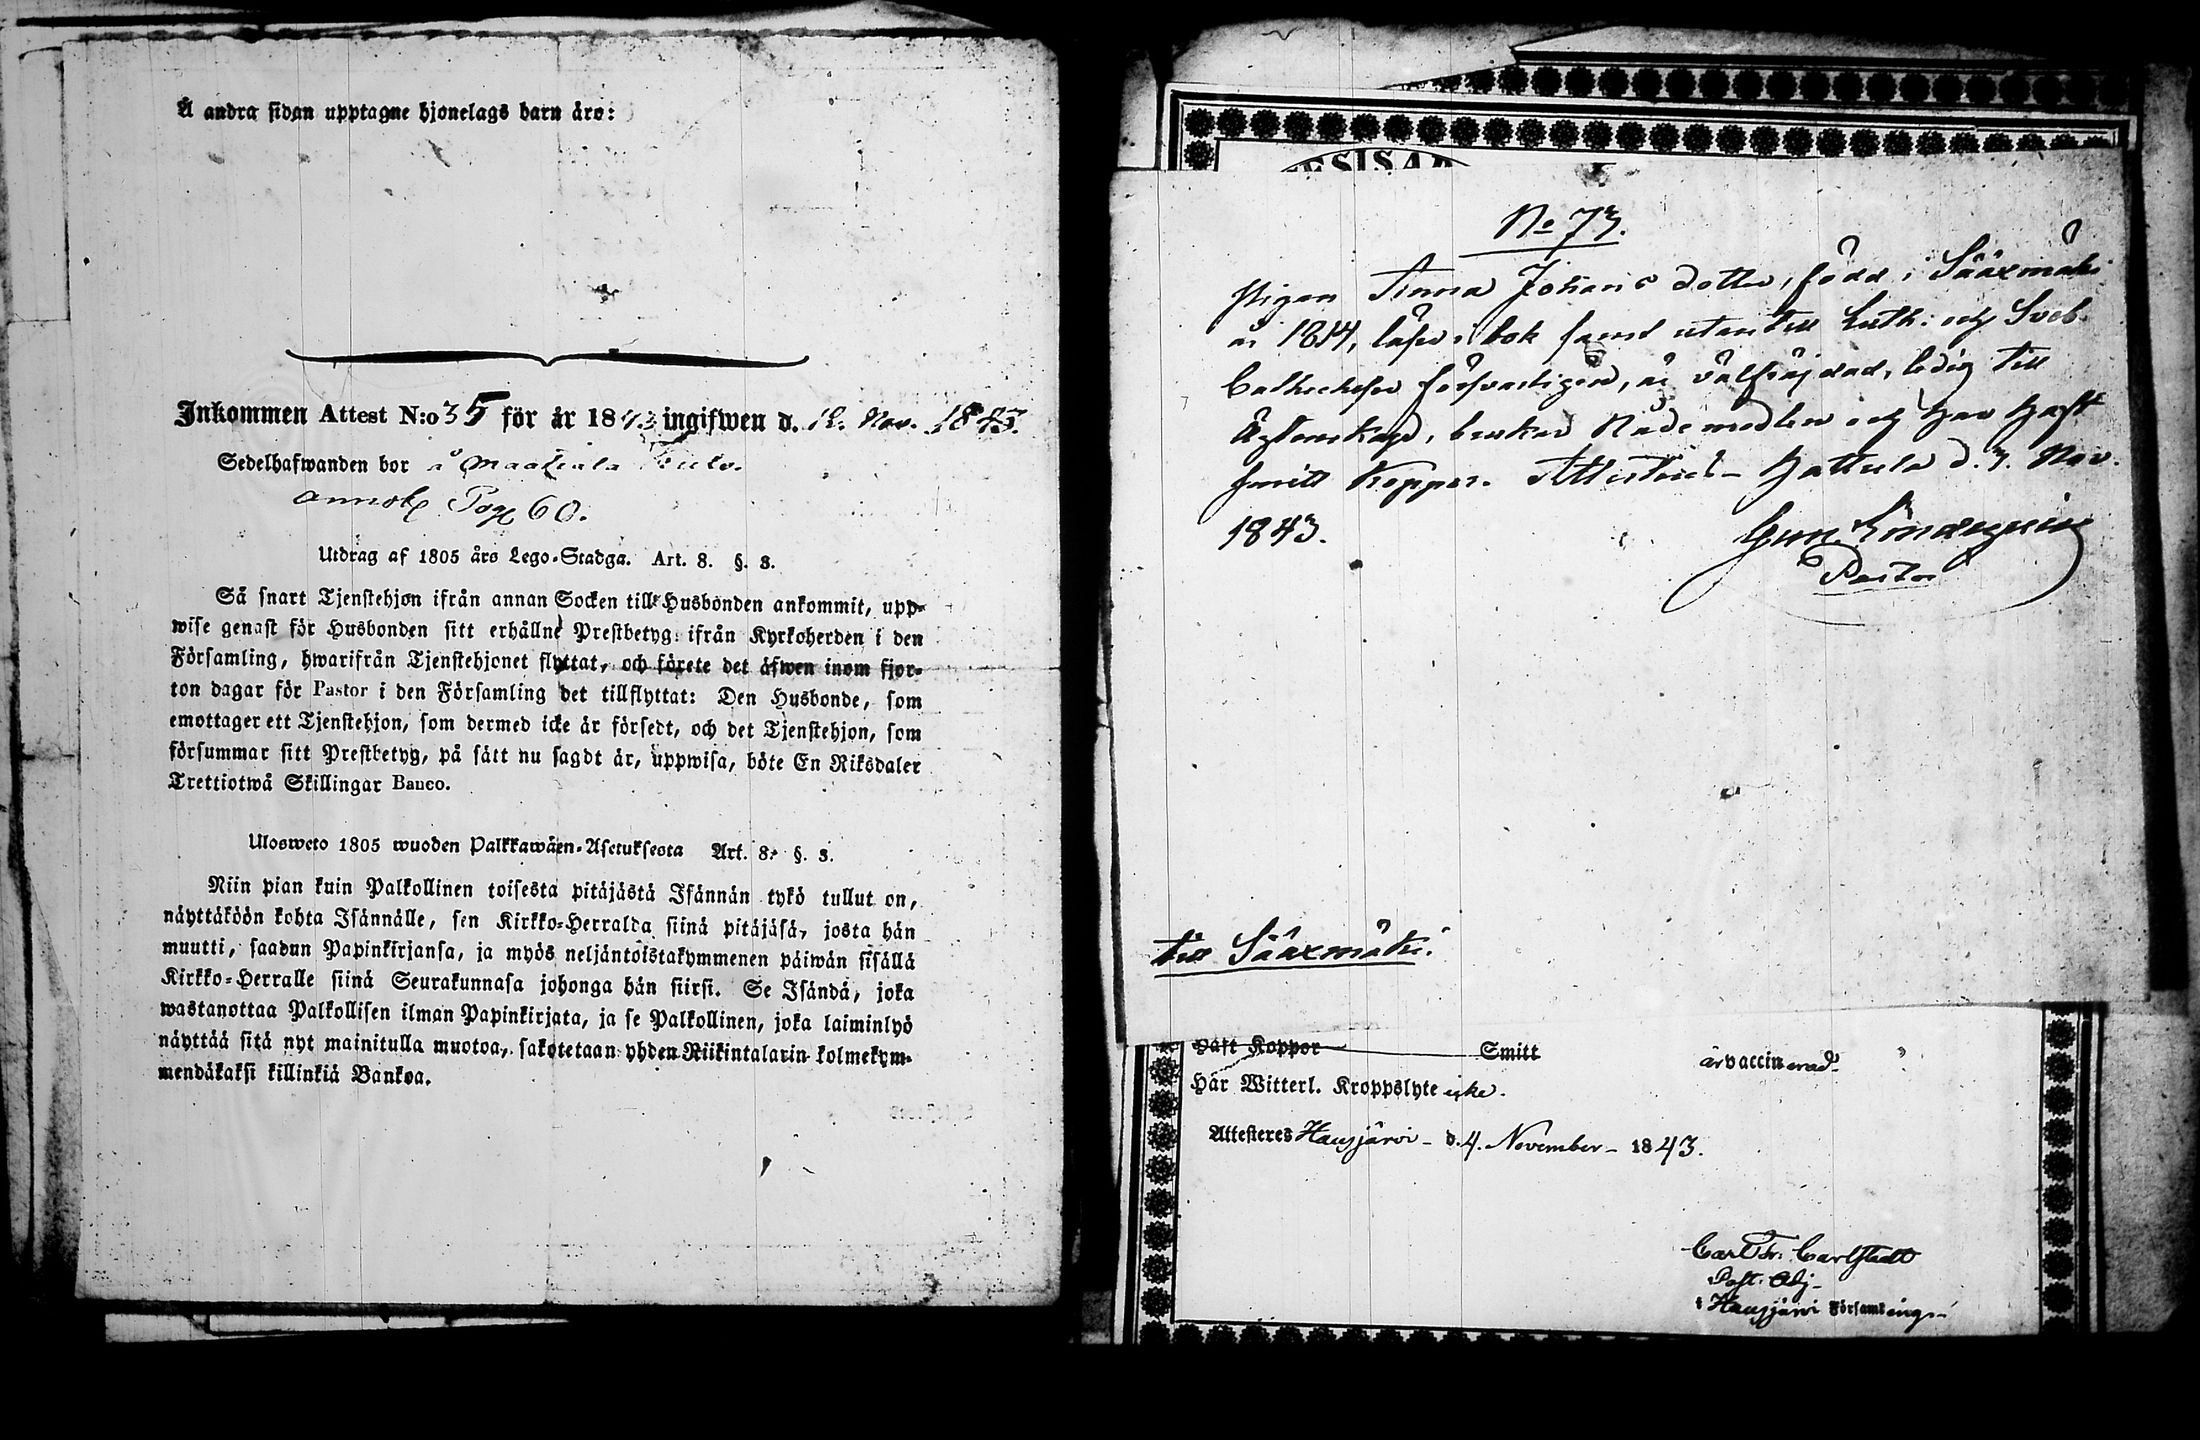 Å andra sidan upptagne hjonelags barn äro:
Inkommen Attest N:o 35 för år 1843 ingifwen d. 12. Nov. 1843.
Sedelhafwanden bor å
annot. Pag 60.
Utdrag af 1805 års Lego-Stadga. Art. 8. §. 3.
Så snart Tjenstehjon ifrån annan Socken till Husbonden ankommit, upp-
wise genast för Husbonden sitt erhållne Prestbetyg ifrån Kyrkoherden i den
Församling, hwarifrån Tjenstehjonet flyttat, och förete det äfwen inom fjor-
ton dagar för Pastor i den Församling det tillflyttat: Den Husbonde, som
emottager ett Tjenstehjon, som dermed icke är försedt, och det Tjenstehjon, som
försummar sitt Prestbetyg, på sätt nu sagdt är, uppwisa, böte En Riksdaler
Trettiotwå Skillingar Banco.
Ulosweto 1805 wuoden Palkkawäen-Asetuksesta Art. 8. §. 3.
Niin pian kuin Palkollinen toisesta pitäjästä Isännän tykö tullut on,
näyttäköön kohta Isännälle, sen Kirkko-Herralda siinä pitäjäsä, josta hän
muutti, saadun Papinkirjansa, ja myös neljäntoistakymmenen päiwän sisällä
Kirkko-Herralle siinä Seurakunnasa johonga hän siirsi. Se Isändä, joka
wastanottaa Palkollisen ilman Papinkirjata, ja se Palkollinen, joka laiminlyö
näyttää sitä nyt mainitulla muotoa, sakotetaan yhden Riikintalarin kolmekym-
mendäkaksi killinkiä Bankoa.
No 73.
Pigan Anna Johans dotter, född i Sääxmäki
år 1814, läser i bok samt utantill Luth. och Sveb.
Cathecheser försvarligen, är välfräjdad, ledig till
Ägtenskap, brukar Nådemedlen och har haft
smitt Koppor. Attesterar Hattula d. 3. Nov.
1843.
Pastor
till Sääxmäki.
Haft Koppor Smitt är vaccinerad
Har Witterl. Kroppslyte icke.
Attesteres Hausjärvi d. 4. November 1843.
Carl Fr. Carlstedt
Past. Adj.
i Hausjärvi Församlings